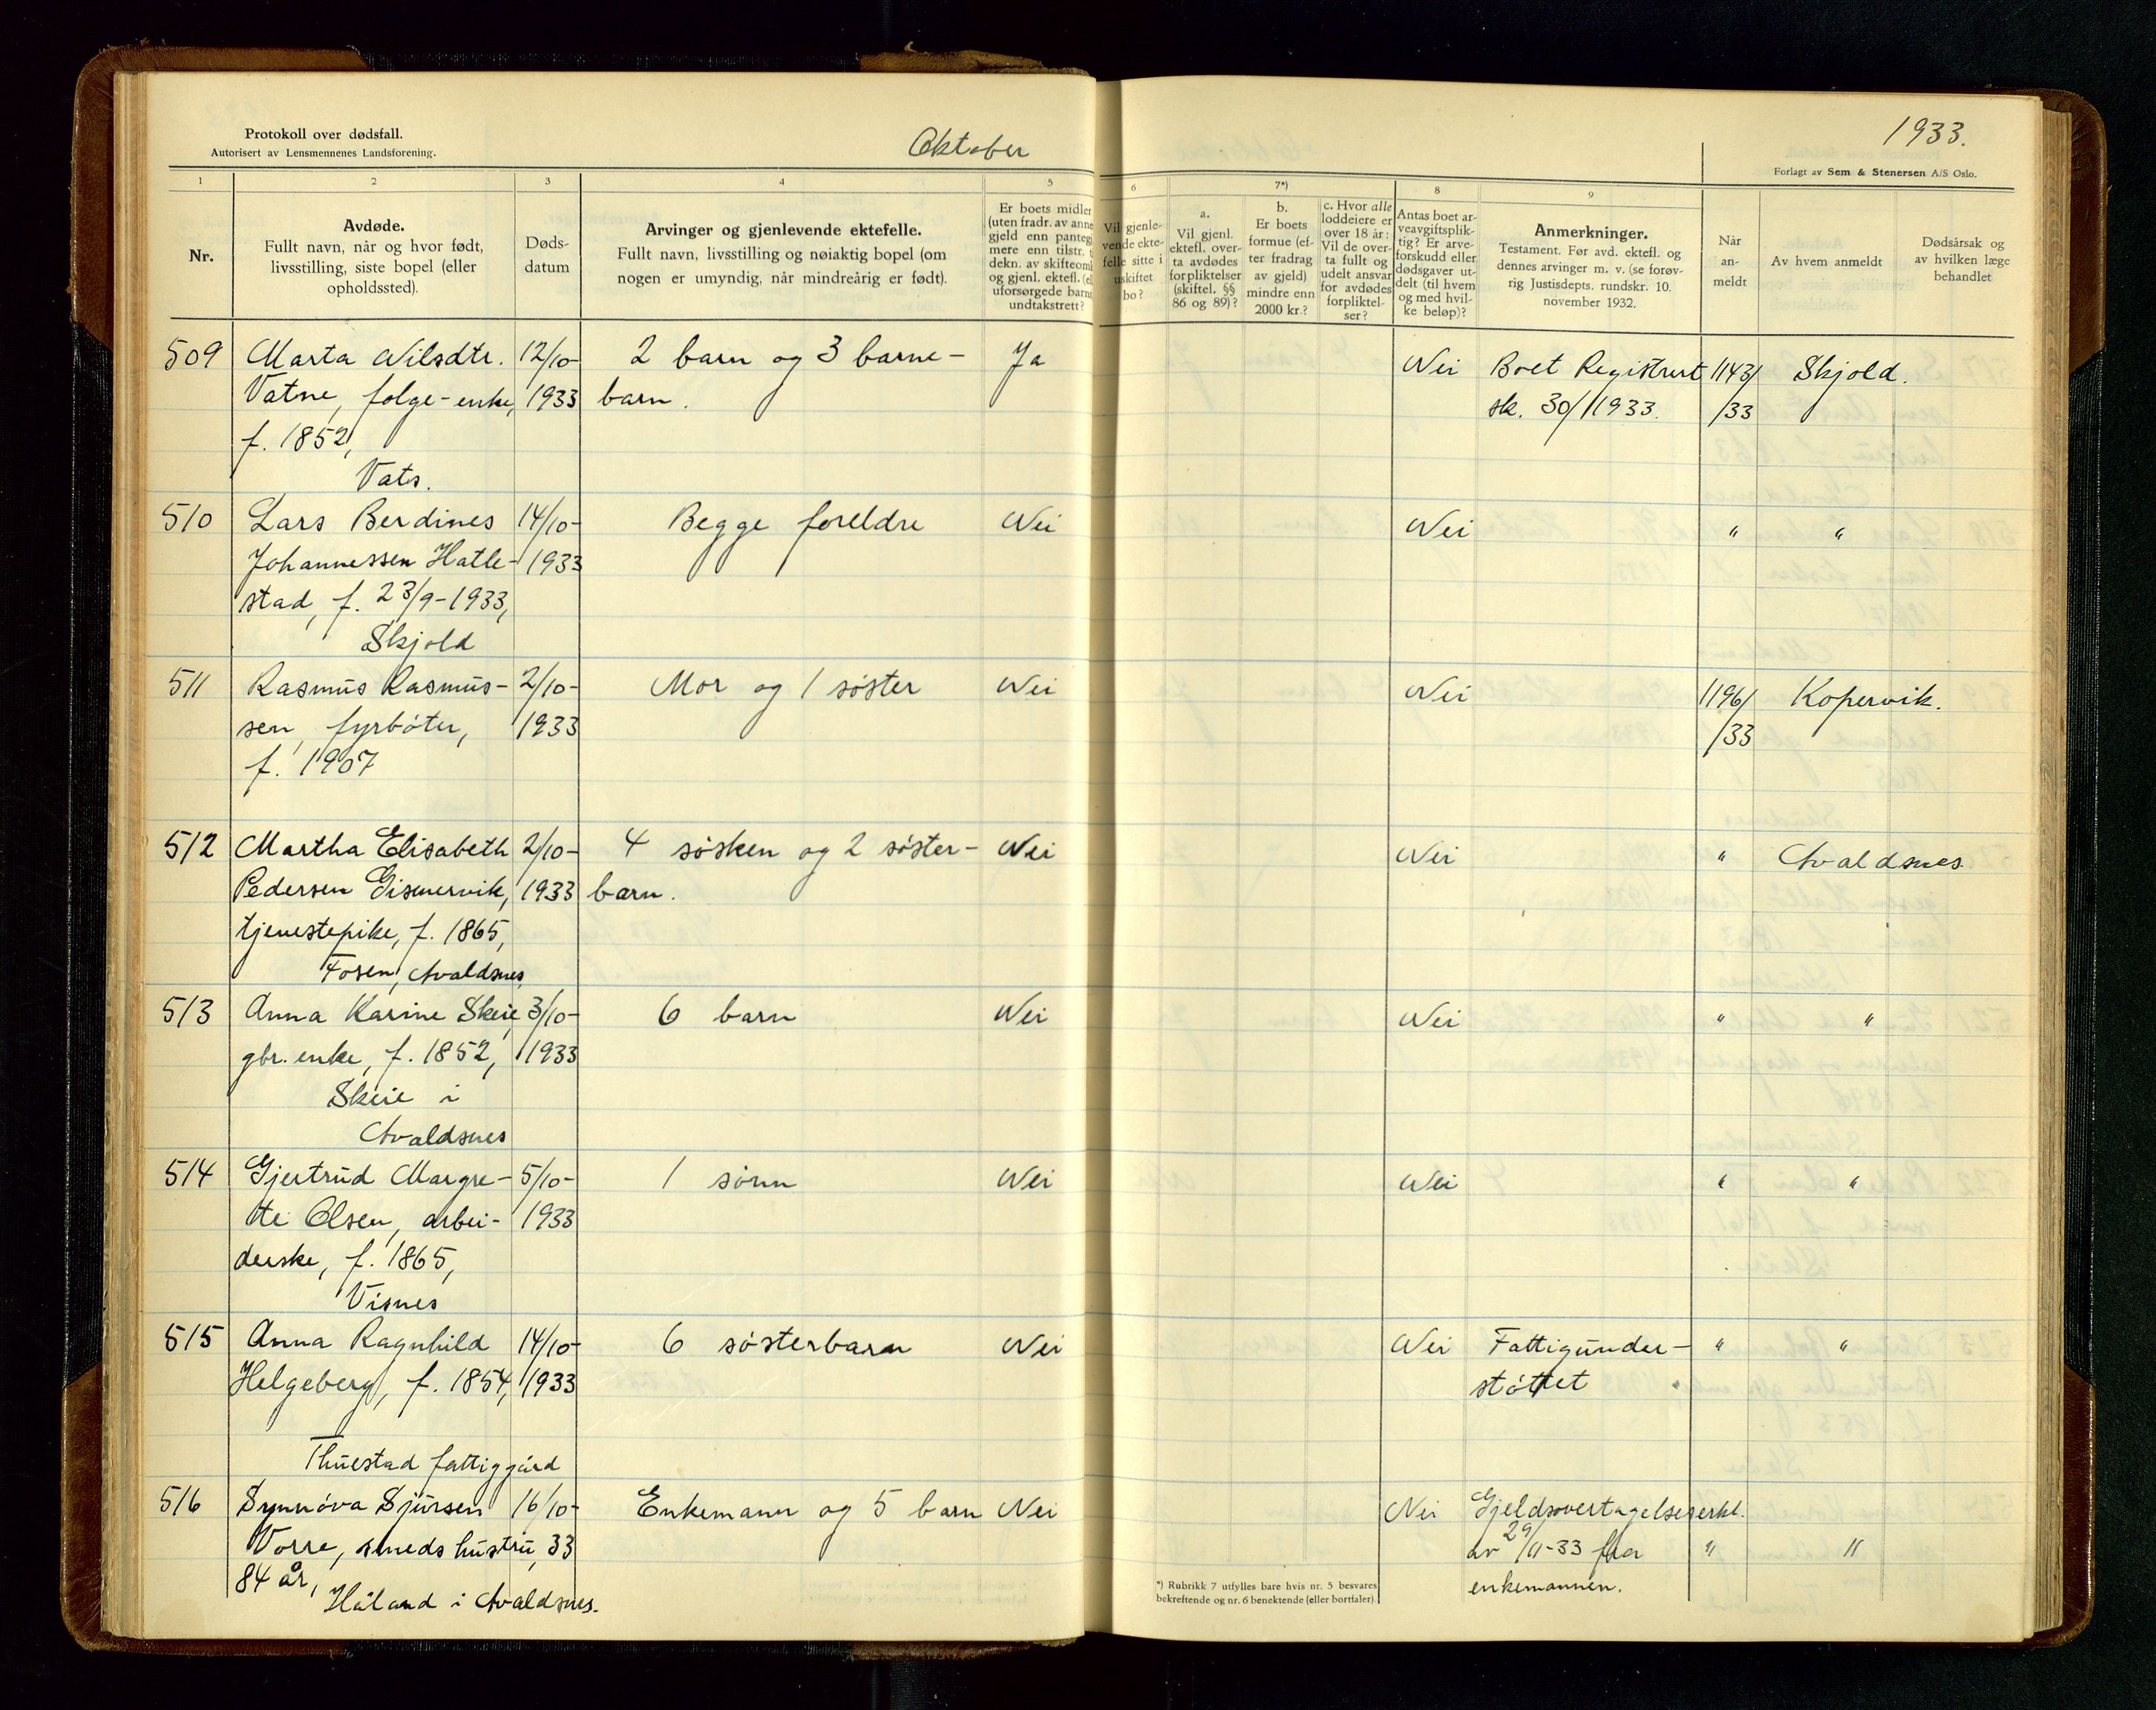 Protokoll over dødsfall.
Autorisert av Lensmennenes Landsforening.
Oktober
1933.
Forlagt av Sem & Stenersen A/S Oslo.
1 2 3 4 5 6 7*) 8 9
Nr.
Avdøde.
Fullt navn, når og hvor født,
livsstilling, siste bopel (eller
opholdssted).
Døds-
datum
Arvinger og gjenlevende ektefelle.
Fullt navn, livsstilling og nøiaktig bopel (om
nogen er umyndig, når mindreårig er født).
Er boets midler
(uten fradr. av anne
gjeld enn panteg
mere enn tilstr.
dekn. av skifteom
og gjenl. ektefl. (el
uforsørgede barn
undtakstrett?
Vil gjenle-
vende ekte-
felle sitte i
uskiftet
bo?
a.
Vil gjenl.
ektefl. over-
ta avdødes
forpliktelser
(skiftel. §§
86 og 89)?
b.
Er boets
formue (ef-
ter fradrag
av gjeld)
mindre enn
2000 kr.?
c. Hvor alle
loddeiere er
over 18 år:
Vil de over-
ta fullt og
udelt ansvar
for avdødes
forpliktel-
ser?
Antas boet ar-
veavgiftsplik-
tig? Er arve-
forskudd eller
dødsgaver ut-
delt (til hvem
og med hvil-
ke beløp)?
Anmerkninger.
Testament. Før avd. ektefl. og
dennes arvinger m. v. (se forøv-
rig Justisdepts. rundskr. 10.
november 1932.
Når
an-
meldt
Av hvem anmeldt
Dødsårsak og
av hvilken læge
behandlet
509 Marta Nilsdtr. 12/10- 2 barn og 3 barne- Ja Nei Boet Registrert 1143/ Skjold.
Vatne, følge-enke, 1933 barn. sk. 30/11933. /33
f. 1852,
Vats.
510 Lars Berdines 14/10- Begge foreldre Nei Nei " "
Johannessen Hatle- 1933
stad, f. 23/9-1933,
Skjold
511 Rasmus Rasmus- 2/10- Mor og 1 søster Nei Nei 1196/ Kopervik.
sen, fyrbøter, 1933 /33
f. 1907
512 Martha Elisabeth 2/10- 4 søsken og 2 søster- Nei Nei " Avaldsnes
Pedersen Gismervik, 1933 barn.
tjenestepike, f. 1865,
Fosen, Avaldsnes
513 Anna Karine Skeie 3/10- 6 barn Nei Nei " "
gbr. enke, f. 1852, 1933
Skeie i
Avaldsnes
514 Gjertrud Margre- 5/10- 1 sønn Nei Nei " "
te Olsen, arbei- 1933
derske, f. 1865,
Visnes
515 Anna Ragnhild 14/10- 6 søsterbarn Nei Nei Fattigunder- " "
Helgeberg, f. 1854, 1933 støttet
Thuestad fattiggård
516 Synnøva Sjursen 16/10- Enkemann og 5 barn Nei Nei Gjeldsovertagelseserkl.
Vorre, smeds hustru, 33 av 29/11-33 fra " "
84 år, enkemannen.
Håland i Avaldsnes.
*) Rubrikk 7 utfylles bare hvis nr. 5 besvares
bekreftende og nr. 6 benektende (eller bortfaler).